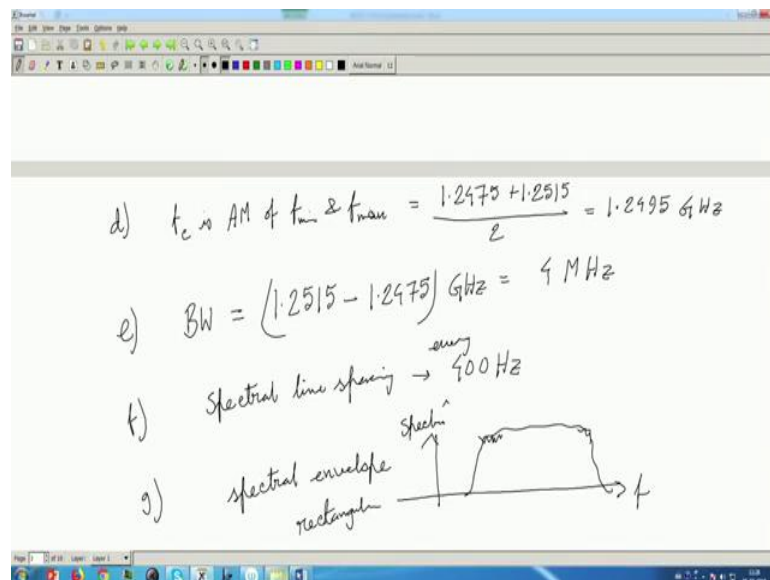 File Edit View Page Tools Options Help
d) fc is AM of fmin & fmax = 1.2475 + 1.2515 / 2 = 1.2495 GHz
e) BW = (1.2515 - 1.2475) GHz = 4 MHz
every
f) Spectral line spacing → 400 Hz
Spectru^
g) spectral envelope
rectangular
f
Layer: Layer 1